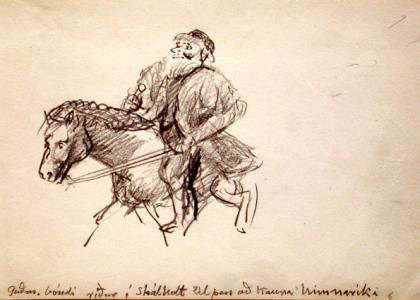 Guðm. bóndi ríður í Skálholt til þess að kaupa himnaríki